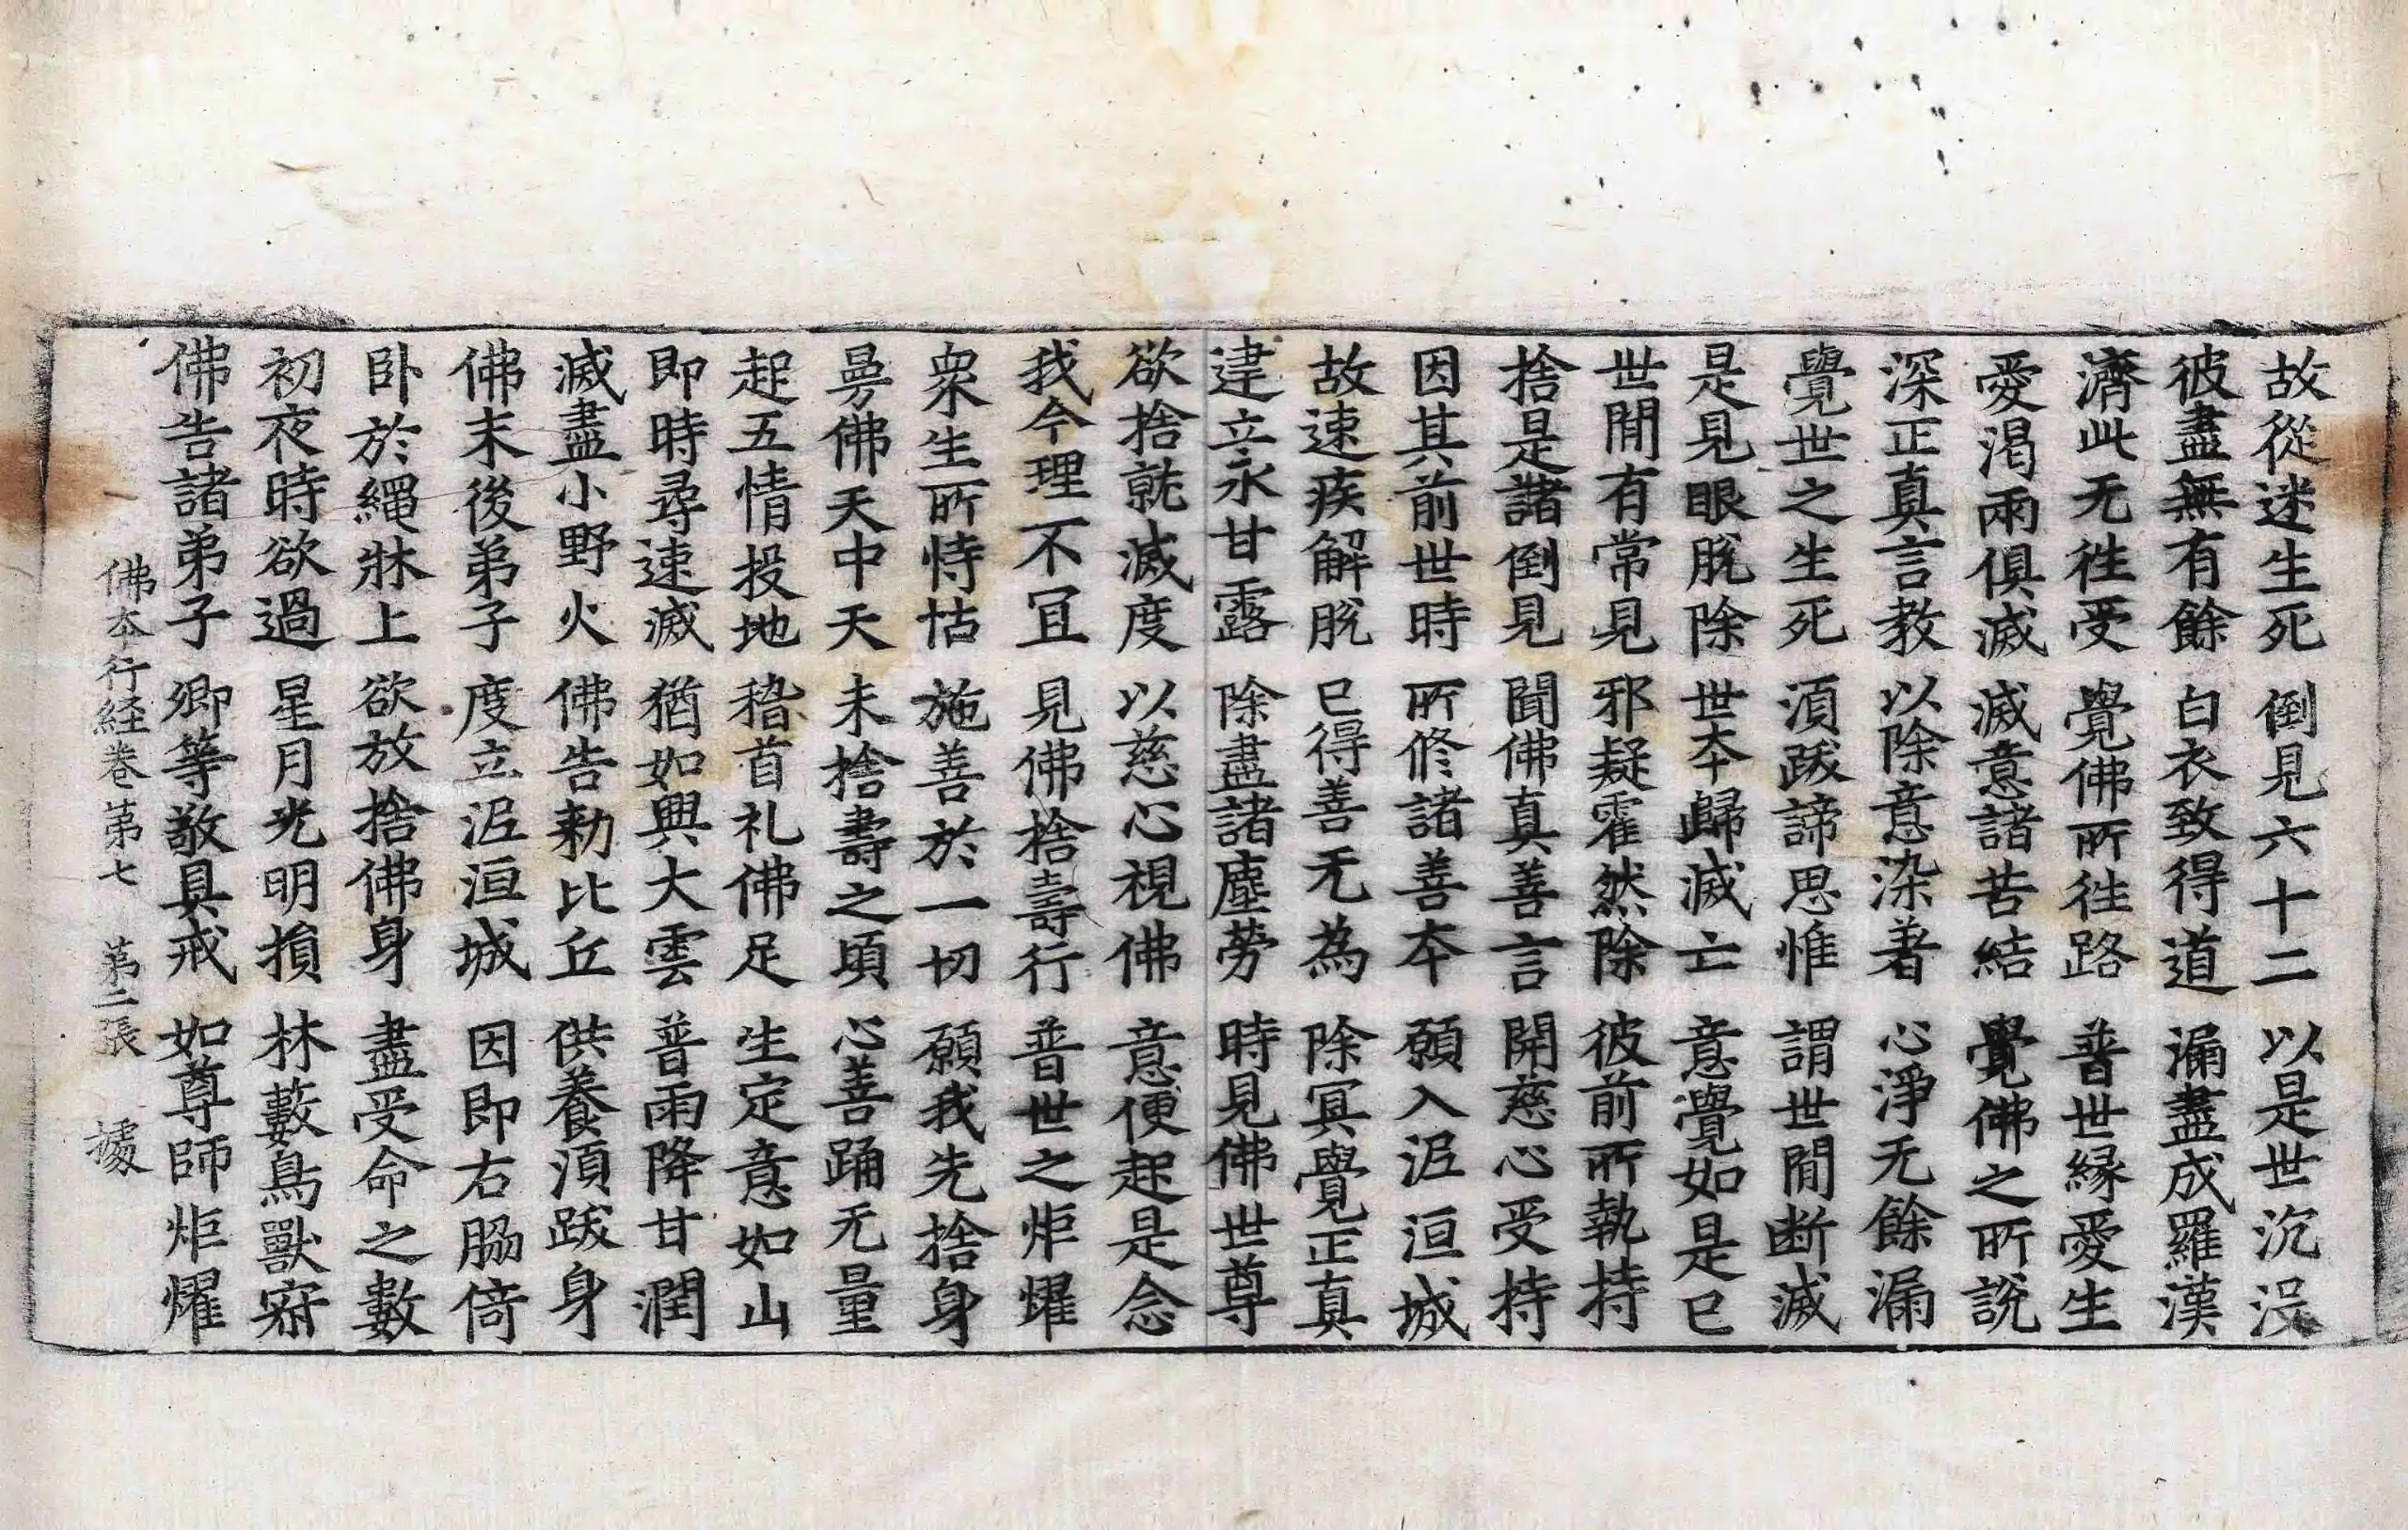 故從迷生死 倒見六十二 以是世沉没
彼盡無有餘 白衣致得道 漏盡成羅漢
濟此无往受 覺佛所往路 普世緣愛生
愛渴兩俱滅 滅意諸苦結 覺佛之所說
深正真言教 以除意染著 心淨无餘漏
覺世之生死 湏跋諦思惟 謂世間断滅
是見眼脫除 世夲歸滅亡 意覺如是已
世間有常見 邪疑霍然除 彼前所執持
捨是諸倒見 聞佛真善言 開慈心受持
因其前世時 所修諸善夲 願入泥洹城
故速疾解脫 已得善无為 除冥覺正真
建立永甘露 除盡諸塵勞 時見佛世尊
欲捨就滅度 以慈心視佛 意便起是念
我今理不冝 見佛捨壽行 普世之炬燿
衆生所恃怙 施善於一切 願我先捨身
曼佛天中天 未捨壽之頃 心善踊无量
起五情投地 稽首礼佛足 生定意如山
即時尋速滅 猶如興大雲 普雨降甘潤
滅盡小野火 佛告勑比丘 供養湏跋身
佛末後弟子 度立泥洹城 因即右脇倚
卧於繩牀上 欲放捨佛身 盡受命之數
初夜時欲過 星月光明損 林藪鳥獸寂
佛告諸弟子 卿等敬具戒 如尊師炬燿
佛夲行経卷第七 第二張 據